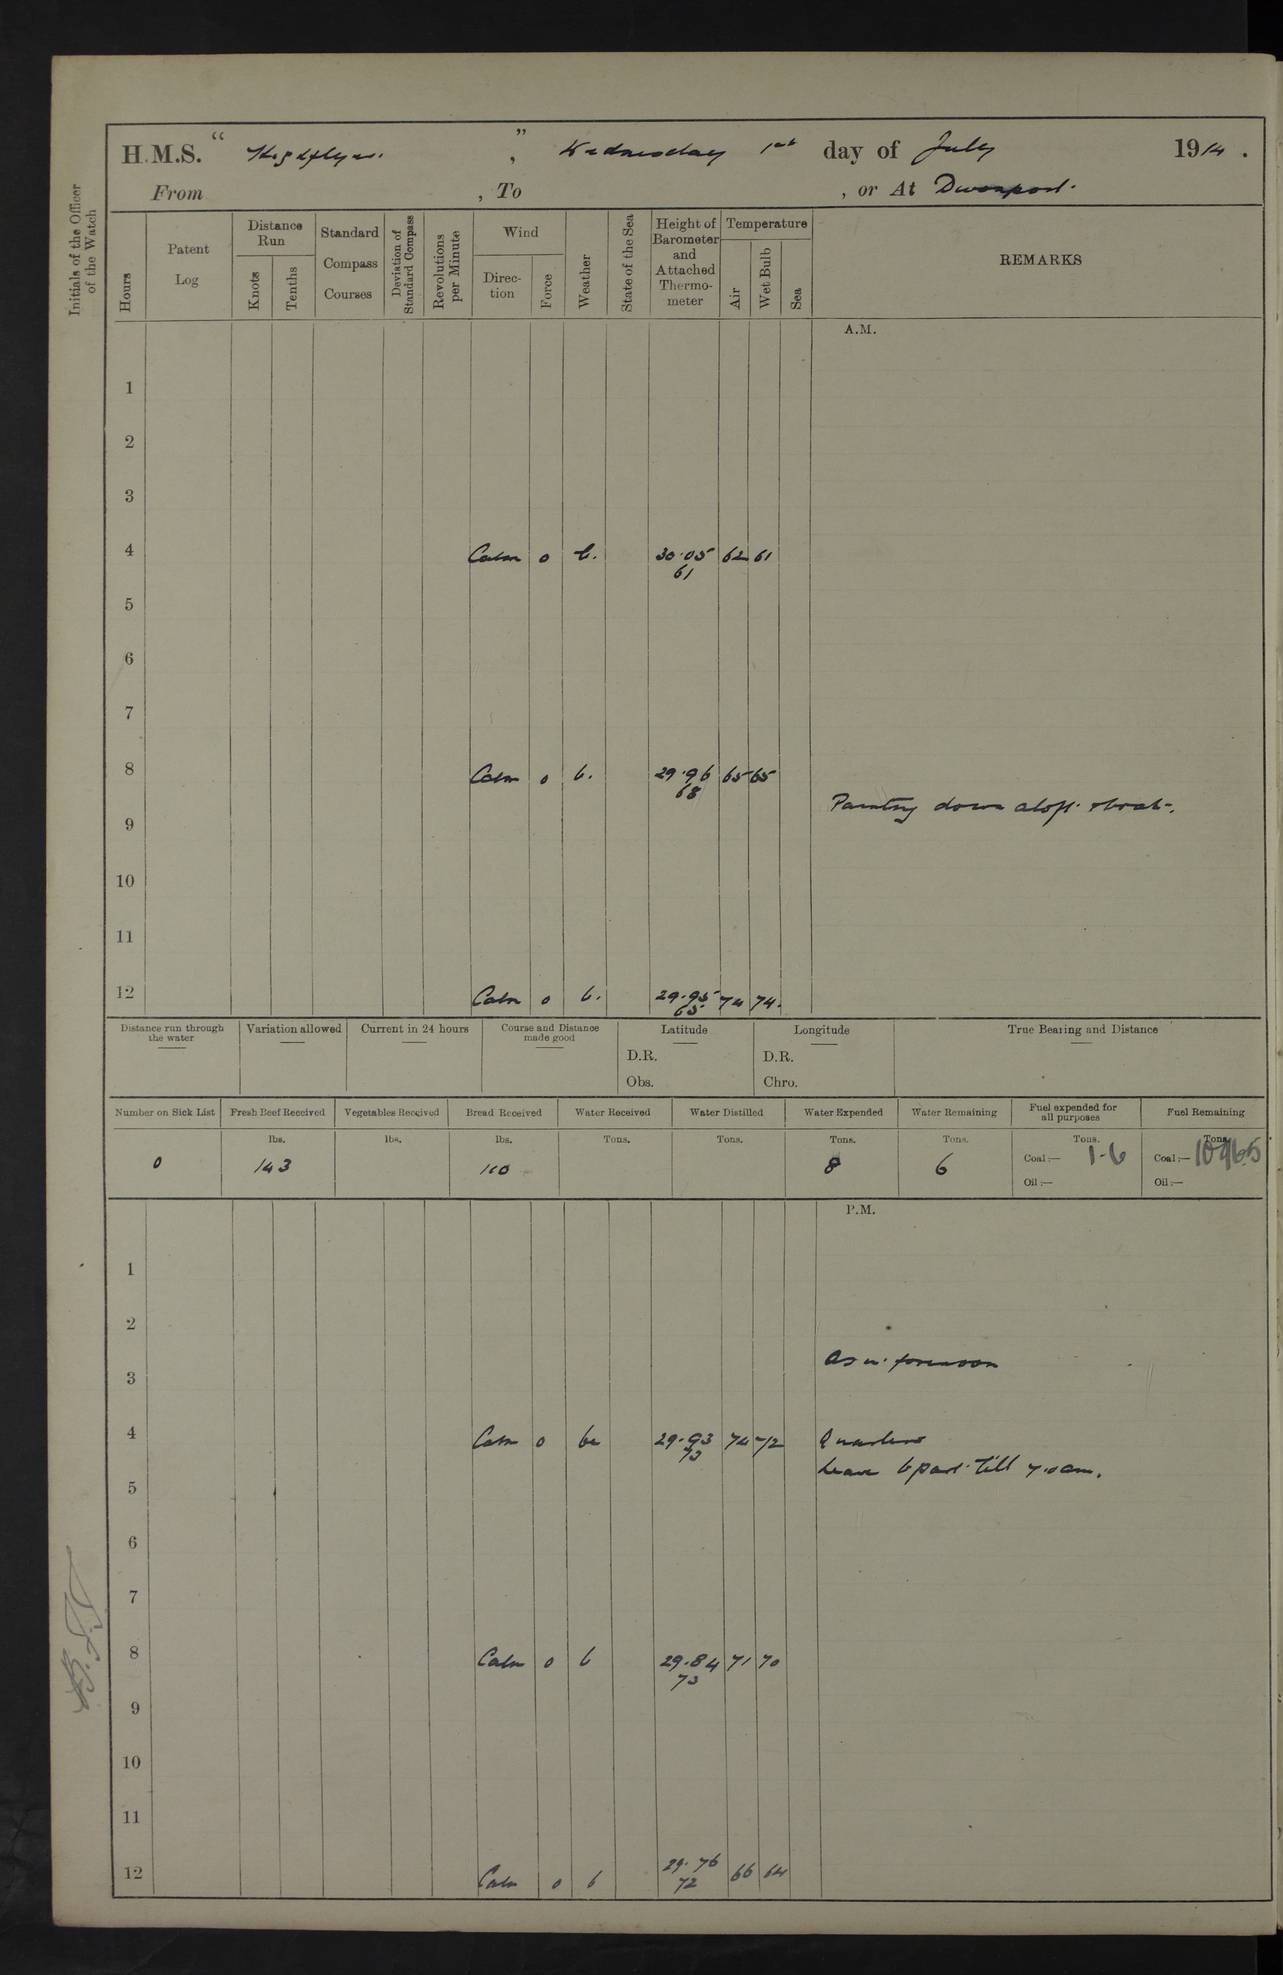 H.M.S. “ Highflyer. ” , Wednesday 1st day of July 1914 .
From , To , or At Devonport.
Initials of the Officer of the Watch
Hours
Patent Log
Distance Run
Knots
Tenths
Standard Compass Courses
Deviation of Standard Compass
Revolutions per Minute
Wind
Direction
Force
Weather
State of the Sea
Height of Barometer and Attached Thermometer
Temperature
Air
Wet Bulb
Sea
REMARKS
A.M.
1
2
3
4 Calm 0 b. 30.05 62 61
61
5
6
7
8 Calm 0 b. 29.96 65 65
68
Painting down aloft
9
10
11
12 Calm 0 b. 29.95 74 74.
65
Distance run through the water
Variation allowed
Current in 24 hours
Course and Distance made good
Latitude
D.R.
Obs.
Longitude
D.R.
Chro.
True Bearing and Distance
Number on Sick List Fresh Beef Received Vegetables Received Bread Received Water Received Water Distilled Water Expended Water Remaining Fuel expended for all purposes Fuel Remaining
lbs. lbs. lbs. Tons. Tons. Tons. Tons. Tons. Tons.
0 143 110 8 6 Coal:— 1.6 Coal:—
Oil:— Oil:—
P.M.
1
2
As in forenoon
3
4 Calm 0 bc 29.93 74 72 Quarters
73
Leave to part till 7.0 am.
5
6
7
8 Calm 0 b 29.84 71 70
73
9
10
11
12 Calm 0 b 29.76 66 64
72